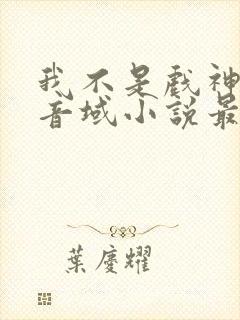 我不是戲神
音域小說最
葉慶耀